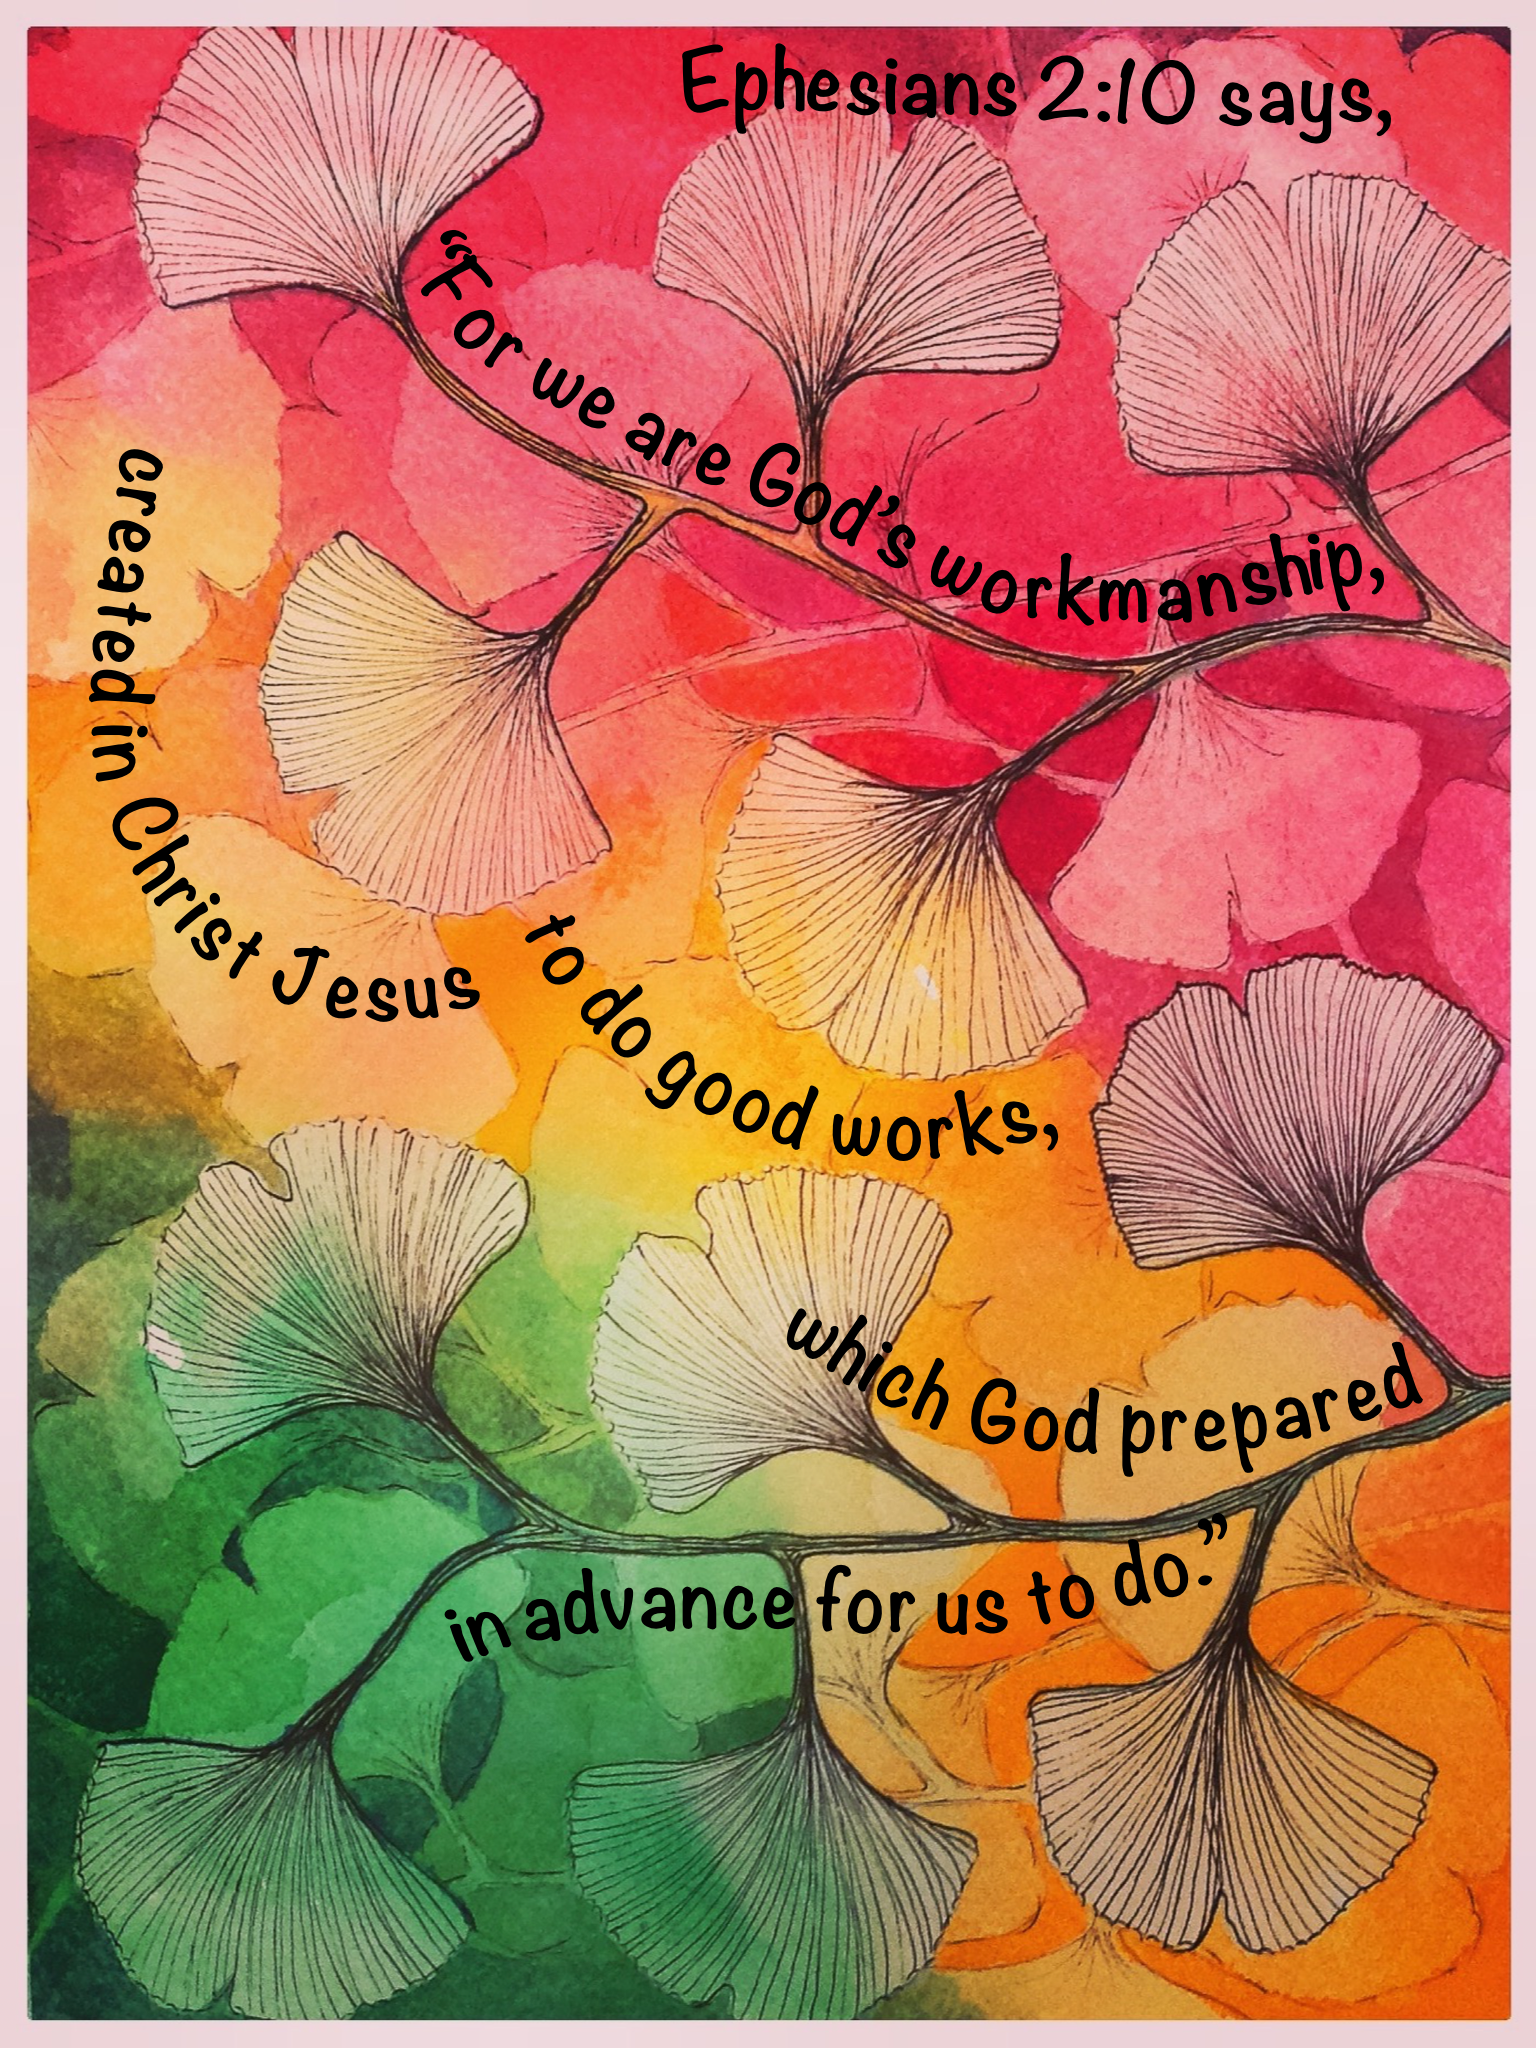 Ephesians 2:10 says,
“For we are God’s workmanship,
created in Christ Jesus
to do good works,
which God prepared
in advance for us to do.”